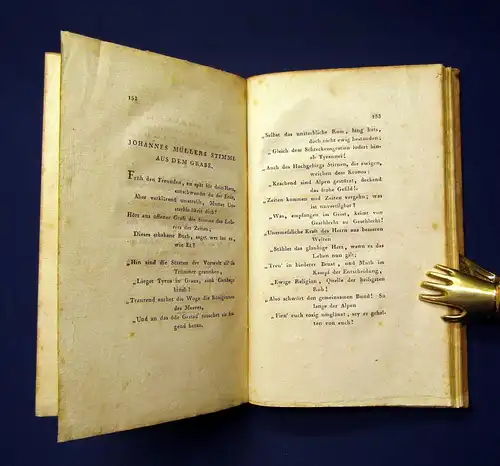 152
JOHANNES MÜLLERS STIMME
AUS DEM GRABE.
Früh den Freunden, zu spät für dein Herz,
entschwandst du der Erde,
Aber verklärend umstrahlt, Mutter
sterblichkeit dich!
Hört aus offener Gruft die Stimme des
rers der Zeiten;
Dieses erhabene Buch, saget, wer las es,
wie Er?
„Hin sind die Staaten der Vorwelt all' in
Trümmer gesunken,
„Lieget Tyrus in Graus, auch Carthago
hinab!
„Traurend suchet die Woge die Königinnen
des Meeres,
„Und an das öde Gestad' rauschet sie
gend heran.
153
„Selbst das unsterbliche Rom, lang hat's,
doch nicht ewig bestanden;
„Gleich dem Schreckensgestirn lodert
ab Tyrannei!
„Auch des Hochgebirgs Stirnen, die ewigen,
weichen dem Kronos;
„Krachend sind Alpen gestürzt, deckend
das frohe Gefild'!
„Zeiten kommen und Zeiten vergehn; was
ist unvertilgbar?
„Was, empfangen im Geist, keimt von
Geschlecht zu Geschlecht!
„Unermessliche Kraft des Herrn aus besseren
Welten
„Stählet das gläubige Herz, wenn es das
Leben nun gilt;
„Treu' in biederer Brust, und Muth im
Kampf der Entscheidung,
„Ewige Religion, Quelle der heiligsten
Ruh!
„Also schwört den gemeinsamen Bund! So
lange der Alpen
„Firn' euch rosig umglänzt, sey er gehal-
ten von euch!